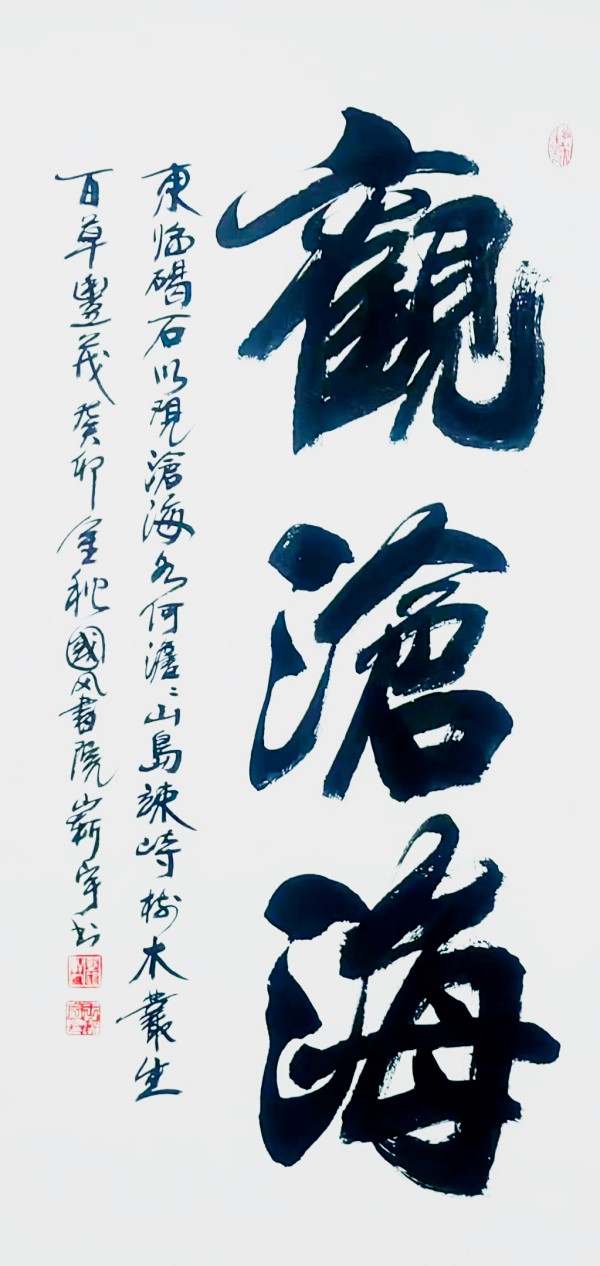 觀滄海
東臨碣石以觀滄海水何澹々山島竦峙樹木叢生
百草豐茂癸卯金秋國風書院嶄宇書